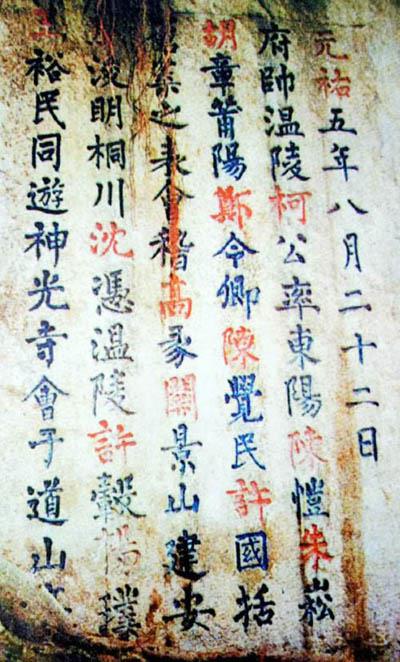 元祐五年八月二十二日
府帥温陵柯公率東陽陳愷朱崧
胡章莆陽鄭令卿陳覺民許國括
蒼葉之表會稽高豕關景山建安
浚明桐川沈憑温陵許轂楊璞
王裕民同遊神光寺會于道山